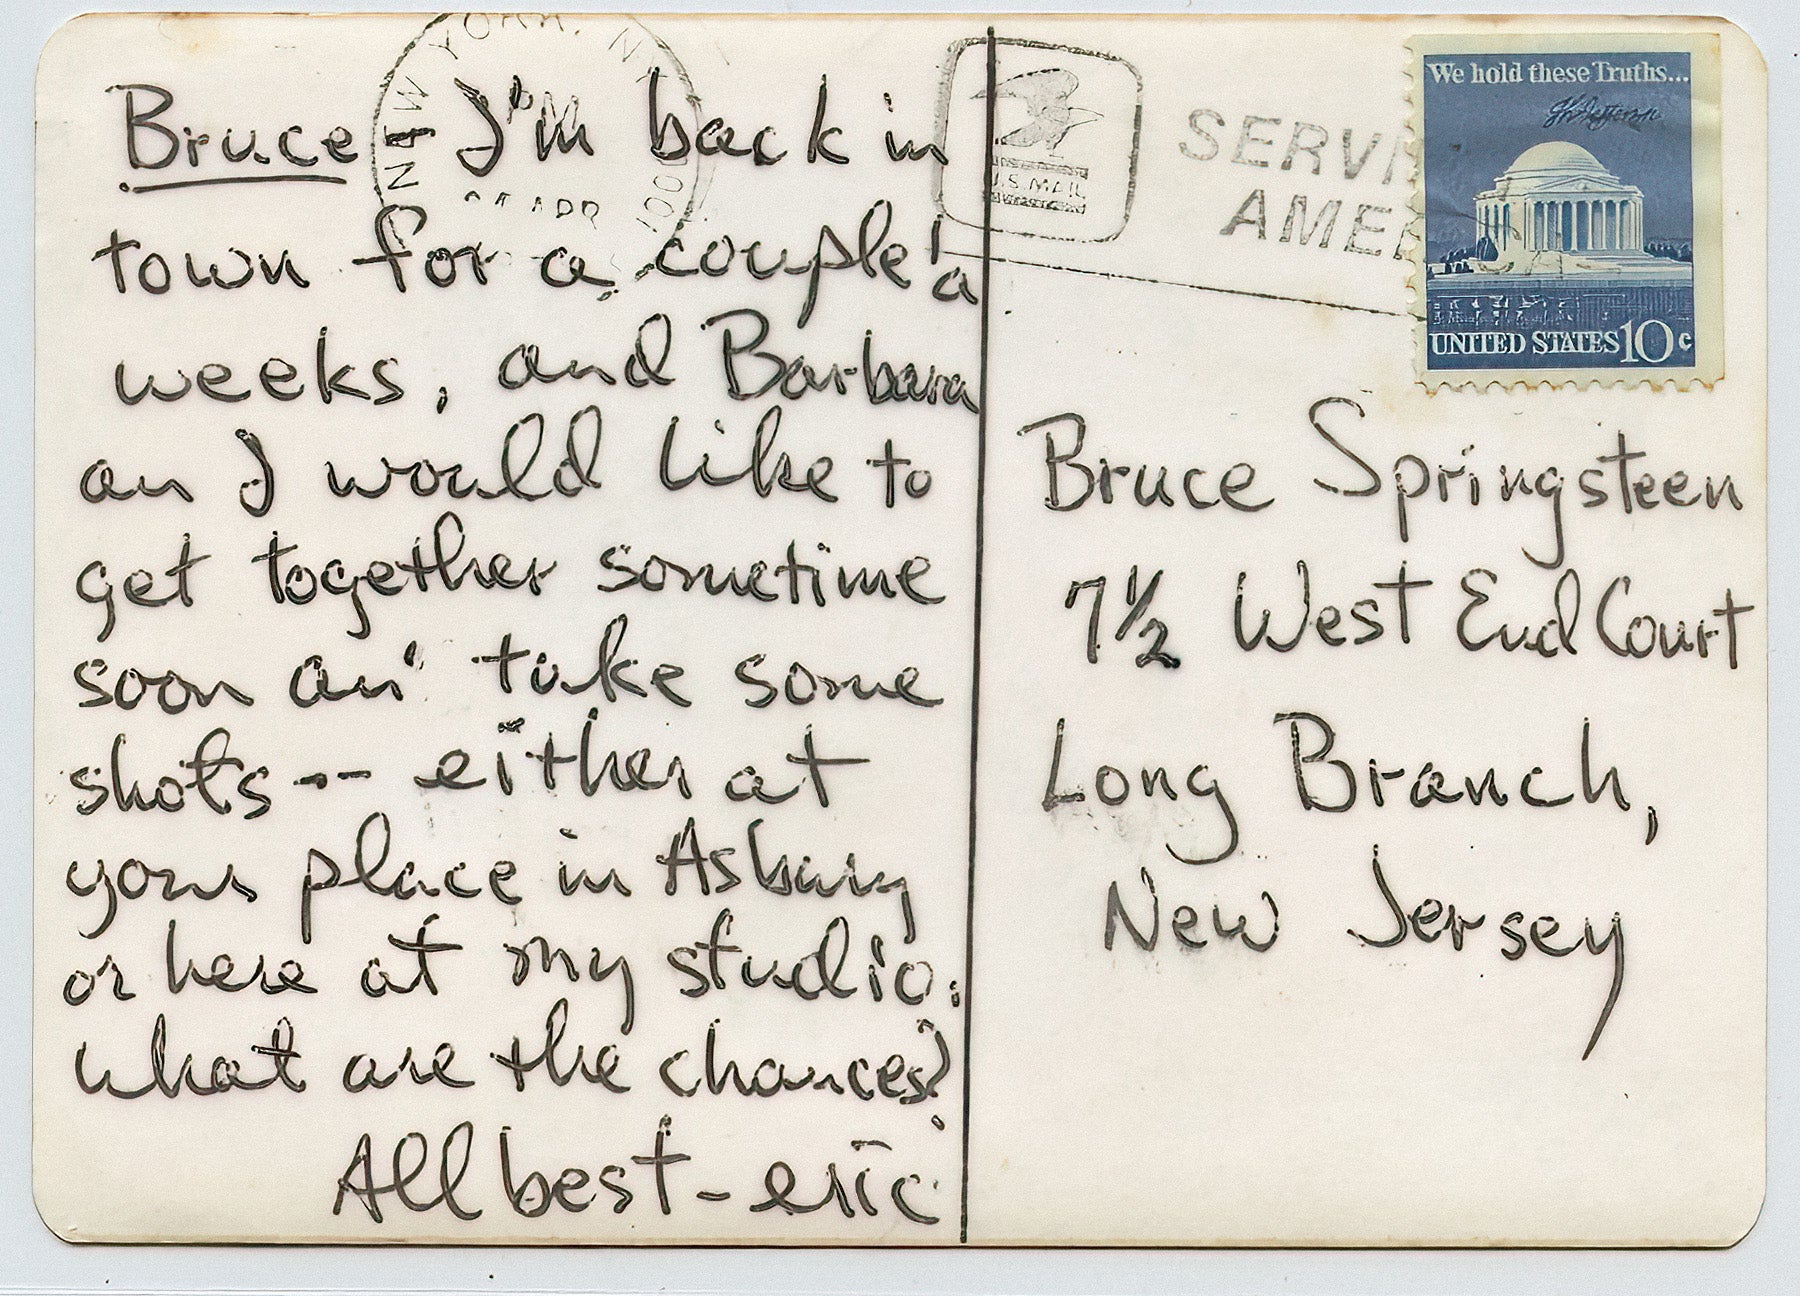 Bruce I'm back in
town for a couple 'a
weeks, and Barbara
an I would like to
get together sometime
soon an' take some
shots -- either at
your place in Asbury
or here at my studio.
what are the chances?
All best - eric
NEW YORK, N.Y.
PM
APR
100
U.S. MAIL
SERVI
AME
We hold these Truths...
Th Jefferson
UNITED STATES 10c
Bruce Springsteen
7½ West End Court
Long Branch,
New Jersey